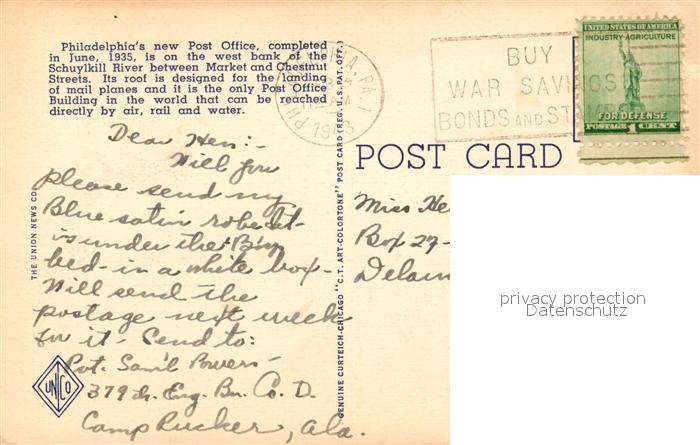 Philadelphia's new Post Office, completed
in June, 1935, is on the west bank of the
Schuylkill River between Market and Chestnut
Streets. Its roof is designed for the landing
of mail planes and it is the only Post Office
Building in the world that can be reached
directly by air, rail and water.
Dear Hen:-
Will you
please send my
Blue satin robe. It
is under the Big
bed - in a white box -
Will send the
postage next week
for it. Send to:
Pvt. Sam'l Powers -
379th. Eng. Bn. Co. D.
Camp Rucker, Ala.
THE UNION NEWS CO
UNCO
GENUINE CURTEICH-CHICAGO "C.T. ART-COLORTONE" POST CARD (REG. U.S. PAT. OFF.)
PA.
1943
BUY
WAR SAVINGS
BONDS AND ST
UNITED STATES OF AMERICA
INDUSTRY-AGRICULTURE
FOR DEFENSE
POSTAGE 1 CENT
POST CARD
Miss He
Box 27-
Delan
privacy protection
Datenschutz